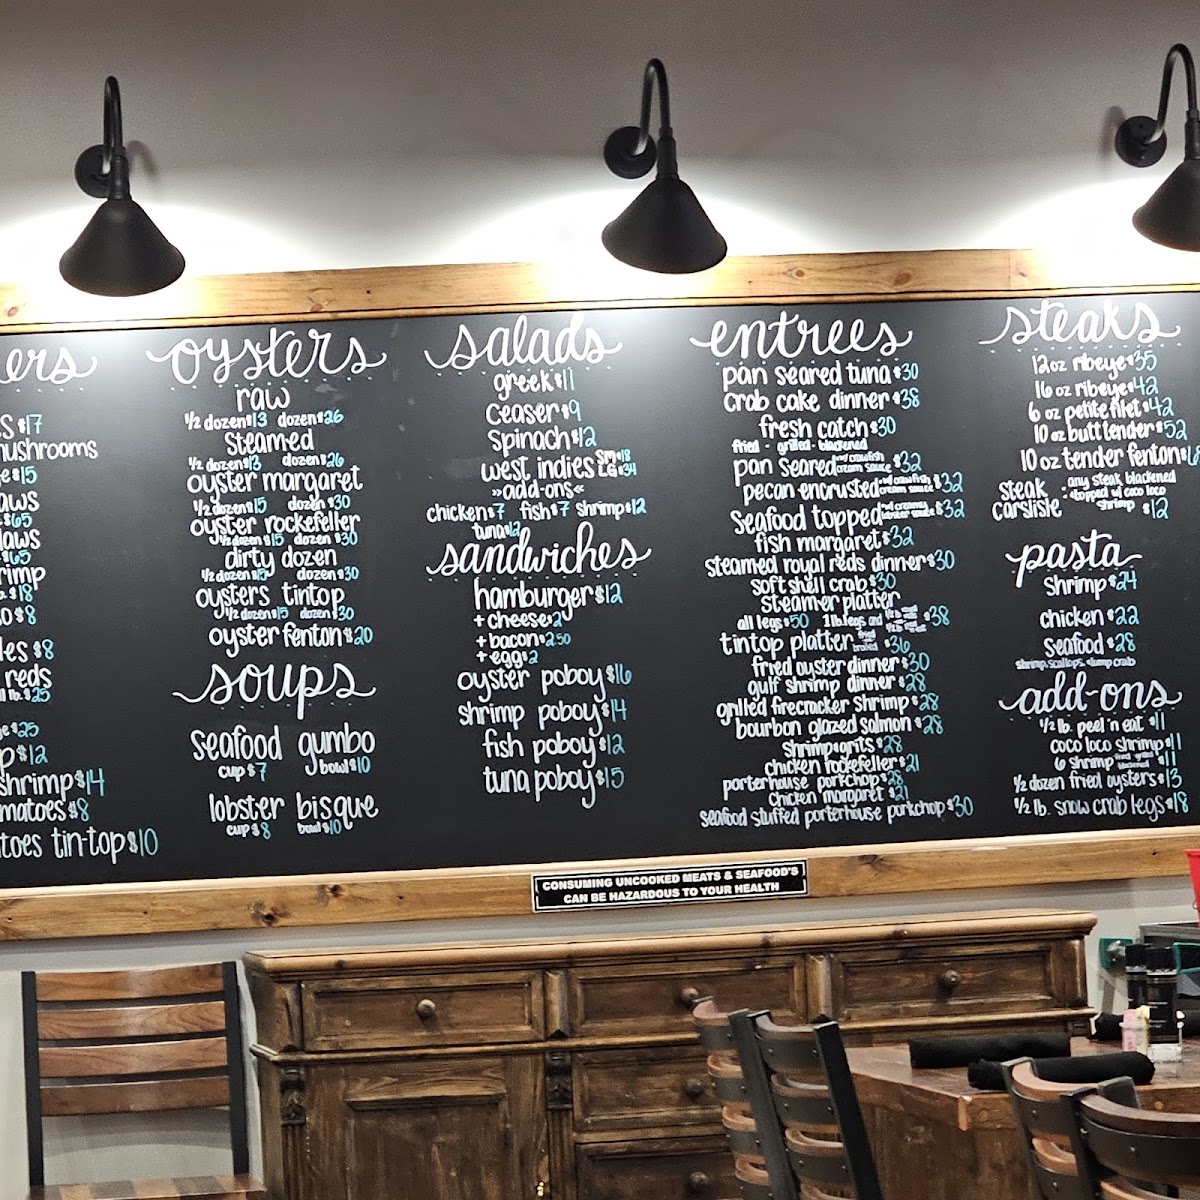 ers
s $17
mushrooms
e $15
aws
$65
laws
$65
rimp
$18
$8
les $8
reds
lb. $25
e $25
p $12
shrimp $14
matoes $8
toes tin-top $10
oysters
raw
1/2 dozen $13 dozen $26
steamed
1/2 dozen $13 dozen $26
oyster margaret
1/2 dozen $15 dozen $30
oyster rockefeller
1/2 dozen $15 dozen $30
dirty dozen
1/2 dozen $15 dozen $30
oysters tintop
1/2 dozen $15 dozen $30
oyster fenton $20
soups
seafood gumbo
cup $7 bowl $10
lobster bisque
cup $8 bowl $10
salads
greek $11
ceaser $9
spinach $12
west indies SM $18 LG $34
»add-ons«
chicken $7 fish $7 shrimp $12
tuna $12
sandwiches
hamburger $12
+ cheese $2
+ bacon $2.50
+ egg $2
oyster poboy $16
shrimp poboy $14
fish poboy $12
tuna poboy $15
entrees
pan seared tuna $30
crab cake dinner $38
fresh catch $30
fried - grilled - blackened
pan seared w/ crawfish cream sauce $32
pecan encrusted w/ crawfish cream sauce $32
seafood topped $32
fish margaret $32
steamed royal reds dinner $30
soft shell crab $30
steamer platter
all legs $50 1 lb legs and $38
tintop platter fried or broiled $36
fried oyster dinner $30
gulf shrimp dinner $28
grilled firecracker shrimp $28
bourbon glazed salmon $28
shrimp & grits $28
chicken rockefeller $21
porterhouse porkchop $28
chicken margaret $21
seafood stuffed porterhouse porkchop $30
steaks
12 oz ribeye $35
16 oz ribeye $42
6 oz petite filet $42
10 oz butt tender $52
10 oz tender fenton $6
steak carslisle - any steak blackened topped w/ coco loco shrimp $12
pasta
shrimp $24
chicken $22
seafood $28
shrimp, scallops, lump crab
add-ons
1/2 lb. peel 'n eat $11
coco loco shrimp $11
6 shrimp fried grilled blackened $11
1/2 dozen fried oysters $13
1/2 lb. snow crab legs $18
CONSUMING UNCOOKED MEATS & SEAFOOD'S
CAN BE HAZARDOUS TO YOUR HEALTH